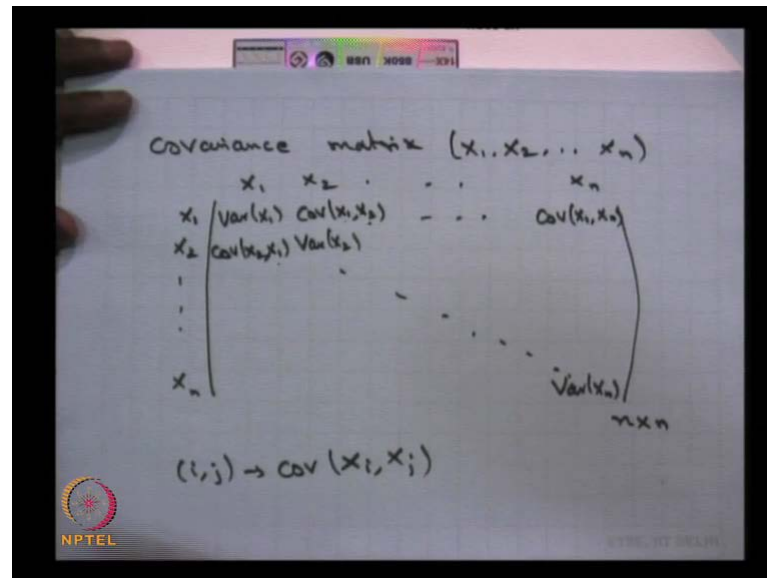 14X 850K USB
covariance matrix (x₁, x₂, .. xₙ)
x₁ x₂ . . . xₙ
x₁ Var(x₁) Cov(x₁,x₂) - - - Cov(x₁,xₙ)
x₂ Cov(x₂,x₁) Var(x₂)
xₙ Var(xₙ)
n×n
(i,j) → cov (xᵢ, xⱼ)
NPTEL